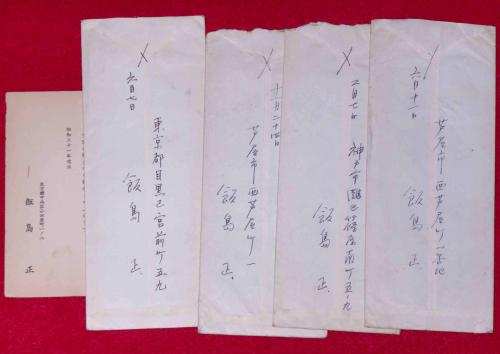 六月十一日
芦屋市西芦屋町一番地
飯島正
二月七日
神戸市灘区篠原南町五ノ九
飯島正
十一月二十四日
芦屋市西芦屋町一
飯島正
六月七日
東京都目黒区宮前町五九
飯島正
昭和三十一年元旦
飯島正